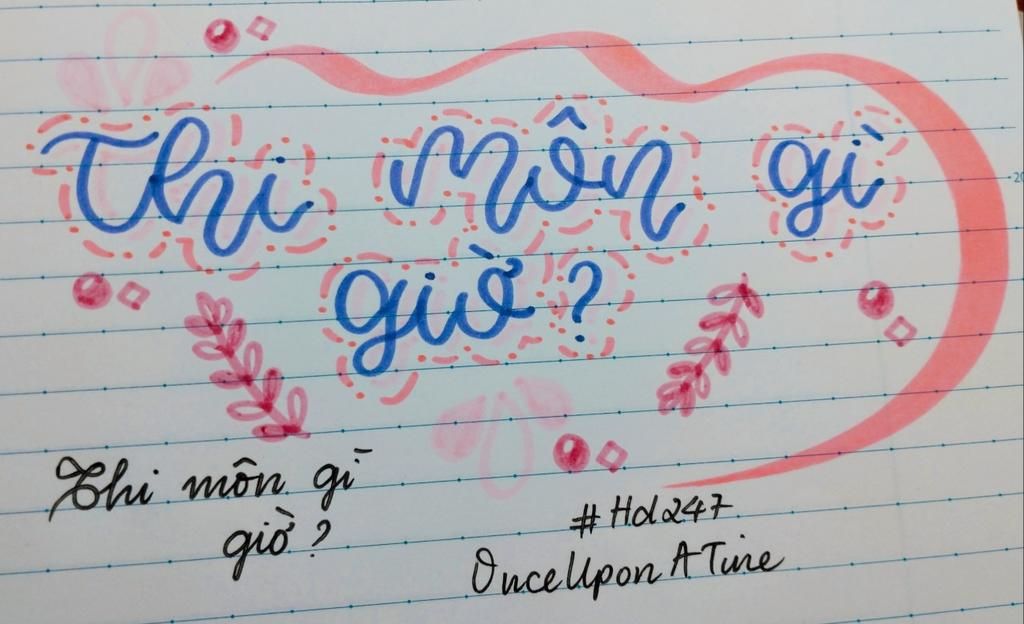 Thi môn gì
giờ?
Thi môn gì
giờ?
#Hd247
OnceUponATime
20